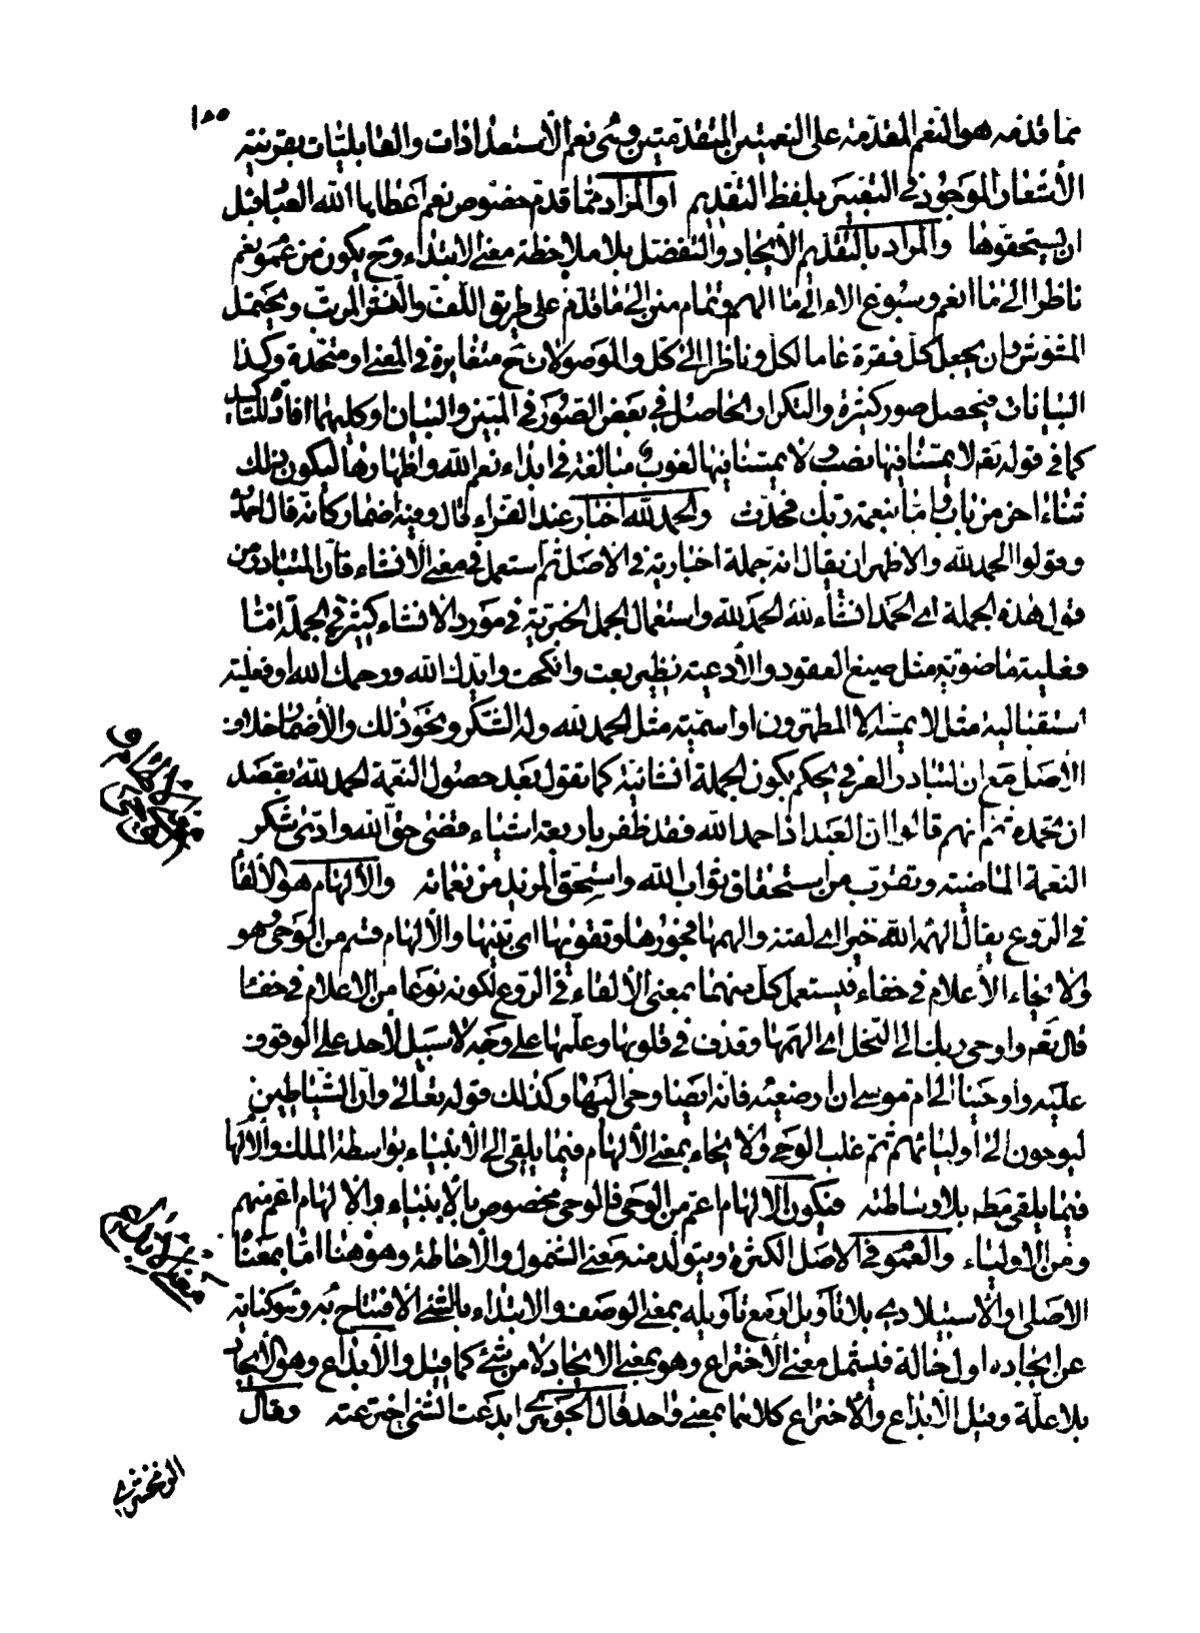 ١٥٥
مما قدمه هو النعم المقدمة على النعمتين المتقدمتين وهى نعم الاستعدادات والقابليات بقرينة
الأشعار الموجود في التفسير بلفظ التقديم او المراد مما قدم خصوص نعم أعطاها الله العباد قبل
ان يستحقوها والمراد بالتقديم الأيجاد والتفضل بلا ملاحظة معنى الابتداء وح يكون من عموم نعم
ناظرا الى ما انعم وسبوغ الاء الى ما الهم وتمام منن الى ما قدم على طريق اللف والنشر المرتب ويحتمل
المشوش وان يجعل كل فقرة عاما لكل وناظرا الى كل والموصولات ح متغايرة في المعنى او متحدة وكذا
البيانات فيحصل صور كثيرة والتكرار الحاصل في بعض الصور في المبين والبيان او كليهما افادة للتأكيد
كما في قوله تعه لا يمسنا فيها نصب ولا يمسنا فيها لغوب مبالغة في ابداء نعم الله واظهارها ليكون بذلك
ثناء اخر من باب واما بنعمة ربك فحدث والحمد لله اخبار عند الفراء قال وفيه اضمار كأنه قال احمدوا
وقولوا الحمد لله والاظهر ان يقال انه جملة اخبارية في الاصل ثم استعمل في معنى الأنشاء فان المتبادر من
قول هذه الجملة اى الحمد انشاء لله الحمد لله واستعمال الجمل الخبرية في مورد الانشاء كثير في الجملة اما
فعلية ماضوية مثل صيغ العقود والأدعية نظير بعت وانكحت وايدك الله ورحمك الله او فعلية
استقبالية مثل لا يمسه الا المطهرون او اسمية مثل الحمد لله وله الشكر ونحو ذلك والأضمار خلاف
الأصل مع ان التبادر العرفي يحكم بكون الجملة انشائية كما تقول بعد حصول النعمة الحمد لله بقصد
ان تحمده ثم انهم قالوا ان العبد اذا حمد الله فقد ظفر باربعة اشياء قضى حق الله وادى شكر
النعمة الماضية وتقرب من استحقاق ثواب الله واستحق المزيد من نعمائه والألهام هو الألقا
في الروع يقال الهمه الله خيرا اى لقنه والهمها فجورها وتقويها اى بينها والألهام قسم من الوحى وهو
والايحاء الأعلام في خفاء فيستعمل كل منهما بمعنى الألقاء في الروع لكونه نوعا من الاعلام في خفاء
قال تعه واوحى ربك الى النحل اى الهمها وقذف في قلوبها وعلمها على وجه لا سبيل لأحد على الوقوف
عليه واوحينا الى ام موسى ان ارضعيه فانه ايضا وحى اليها وكذلك قوله تعالى وان الشياطين
ليوحون الى أوليائهم ثم غلب الوحى والايحاء بمعنى الألهام فيما يلقى الى الأنبياء بواسطة الملك والألها
فيما يلقى مط بلا وساطته فيكون الالهام اعم من الوحى فالوحى مخصوص بالأنبياء والالهام اعم منهم
ومن الاولياء والعموم في الاصل الكثرة ويتولد منه معنى الشمول والأحاطة وهو هنا اما بمعناه
الاصلى او الأستيلادى بلا تأويل او مع تأويله بمعنى الوصف والابتداء بالشئ الافتتاح به وهو كناية
عن ايجاده اول حالة فيشمل معنى الأختراع وهو بمعنى الايجاد لا من شئ كما قيل والأبداع وهو الأيجاد
بلا علة وقيل الأبداع والأختراع كلاهما بمعنى واحد قال الجوهرى ابدعت الشئ اخترعته وقال
الزمخشرى